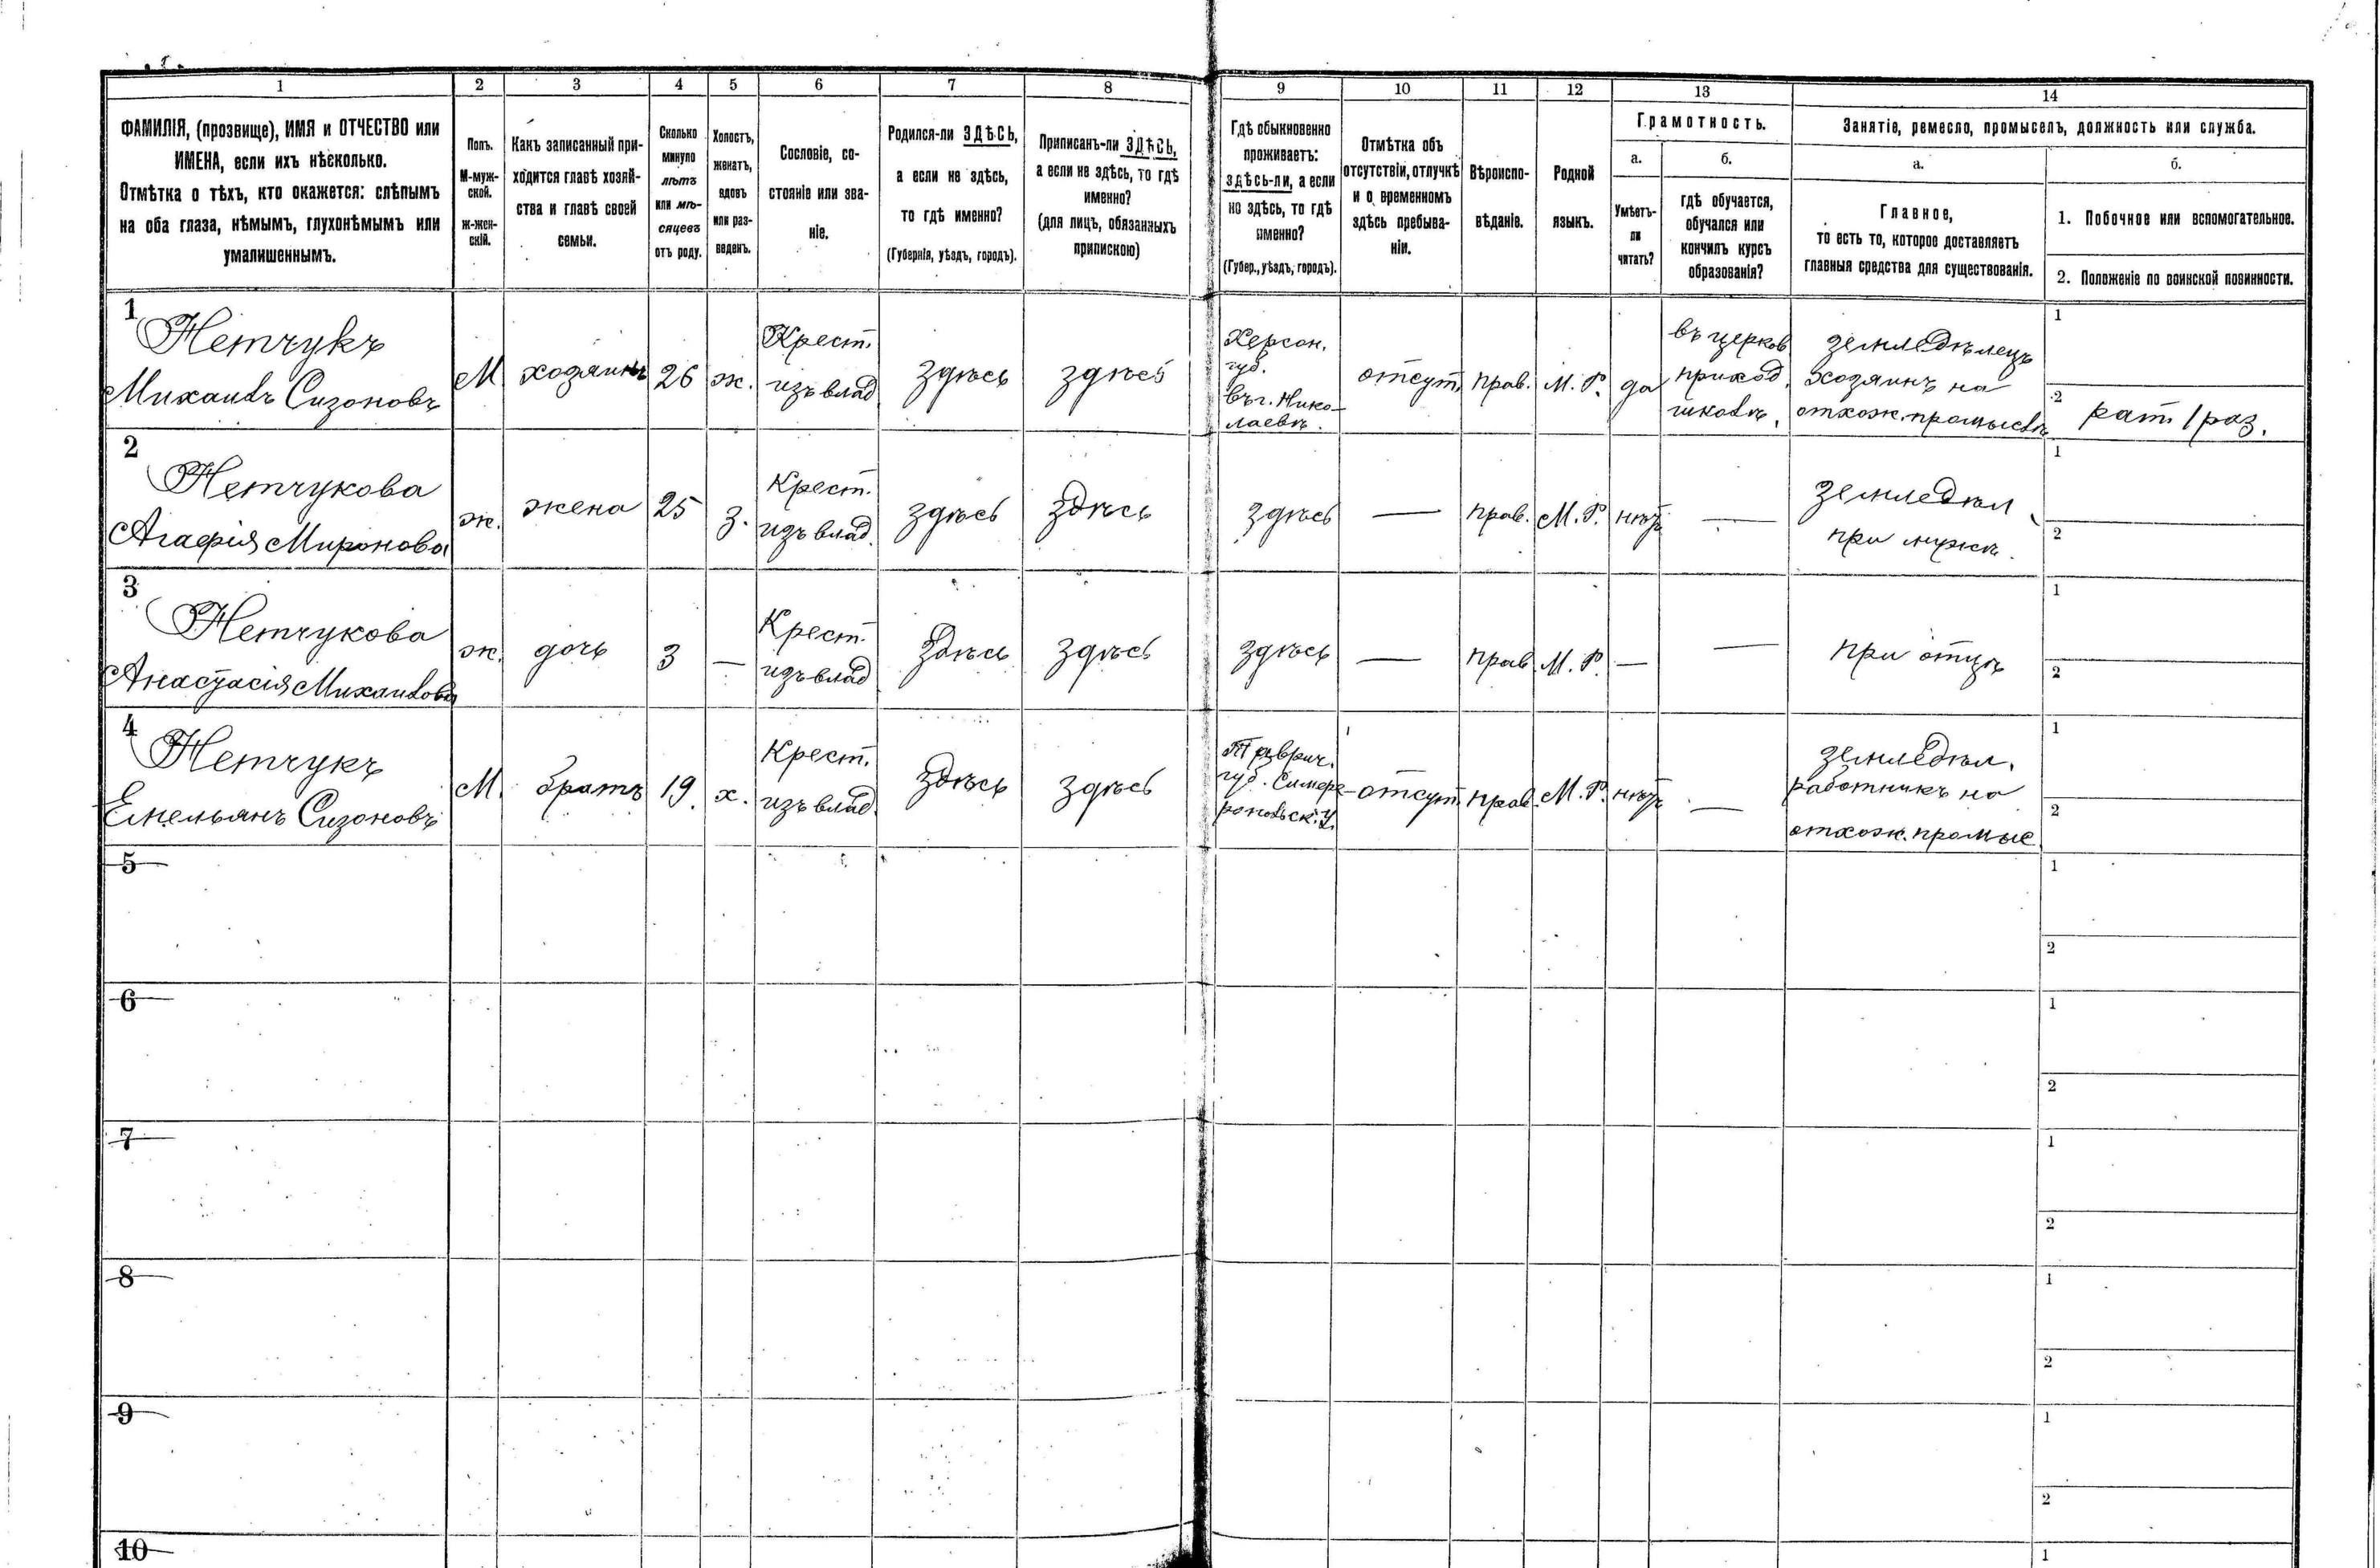 1 2 3 4 5 6 7 8 9 10 11 12 13 14
ФАМИЛІЯ, (прозвище), ИМЯ и ОТЧЕСТВО или
ИМЕНА, если ихъ нѣсколько.
Отмѣтка о тѣхъ, кто окажется: слѣпымъ
на оба глаза, нѣмымъ, глухонѣмымъ или
умалишеннымъ.
Полъ.
М-муж-
ской.
ж-жен-
скій.
Какъ записанный при-
ходится главѣ хозяй-
ства и главѣ своей
семьи.
Сколько
минуло
лѣтъ
или мѣ-
сяцевъ
отъ роду.
Холостъ,
женатъ,
вдовъ
или раз-
веденъ.
Сословіе, со-
стояніе или зва-
ніе.
Родился-ли ЗДѢСЬ,
а если не здѣсь,
то гдѣ именно?
(Губернія, уѣздъ, городъ).
Приписанъ-ли ЗДѢСЬ,
а если не здѣсь, то гдѣ
именно?
(для лицъ, обязанныхъ
припискою)
Гдѣ обыкновенно
проживаетъ:
здѣсь-ли, а если
не здѣсь, то гдѣ
именно?
(Губер., уѣздъ, городъ).
Отмѣтка объ
отсутствіи, отлучкѣ
и о временномъ
здѣсь пребыва-
ніи.
Вѣроиспо-
вѣданіе.
Родной
языкъ.
Грамотность.
а.
Умѣетъ-
ли
читать?
б.
гдѣ обучается,
обучался или
кончилъ курсъ
образованія?
Занятіе, ремесло, промыселъ, должность или служба.
а.
Главное,
то есть то, которое доставляетъ
главныя средства для существованія.
б.
1. Побочное или вспомогательное.
2. Положеніе по воинской повинности.
1
Нетчукъ
Михаилъ Сизоновъ
М
хозяинъ
26
ж.
Крест.
изъ влад
здѣсь
здѣсь
Херсон.
губ.
въ г. Нико-
лаевѣ.
отсут.
прав.
М. Р.
да
въ церков
приход.
школѣ.
земледѣлецъ
хозяинъ на
отхож. промыслѣ
1
2
рат. 1 раз.
2
Нетчукова
Агафія Миронова
ж.
жена
25
з.
Крест.
изъ влад.
здѣсь
здѣсь
здѣсь
—
прав.
М. Р.
нѣтъ
—
земледѣл
при мужѣ.
1
2
3
Нетчукова
Анастасія Михаилова
ж.
дочь
3
—
Крест.
изъ влад
здѣсь
здѣсь
здѣсь
—
прав
М. Р.
—
—
при отцѣ
1
2
4
Нетчукъ
Емельянъ Сизоновъ
М.
братъ
19.
х.
Крест.
изъ влад.
здѣсь
здѣсь
Таврич.
губ. Симфе-
ропольск. у.
отсут.
прав
М. Р.
нѣтъ
—
земледѣл.
работникъ на
отхож. промыс.
1
2
5
1
2
6
1
2
7
1
2
8
1
2
9
1
2
10
1